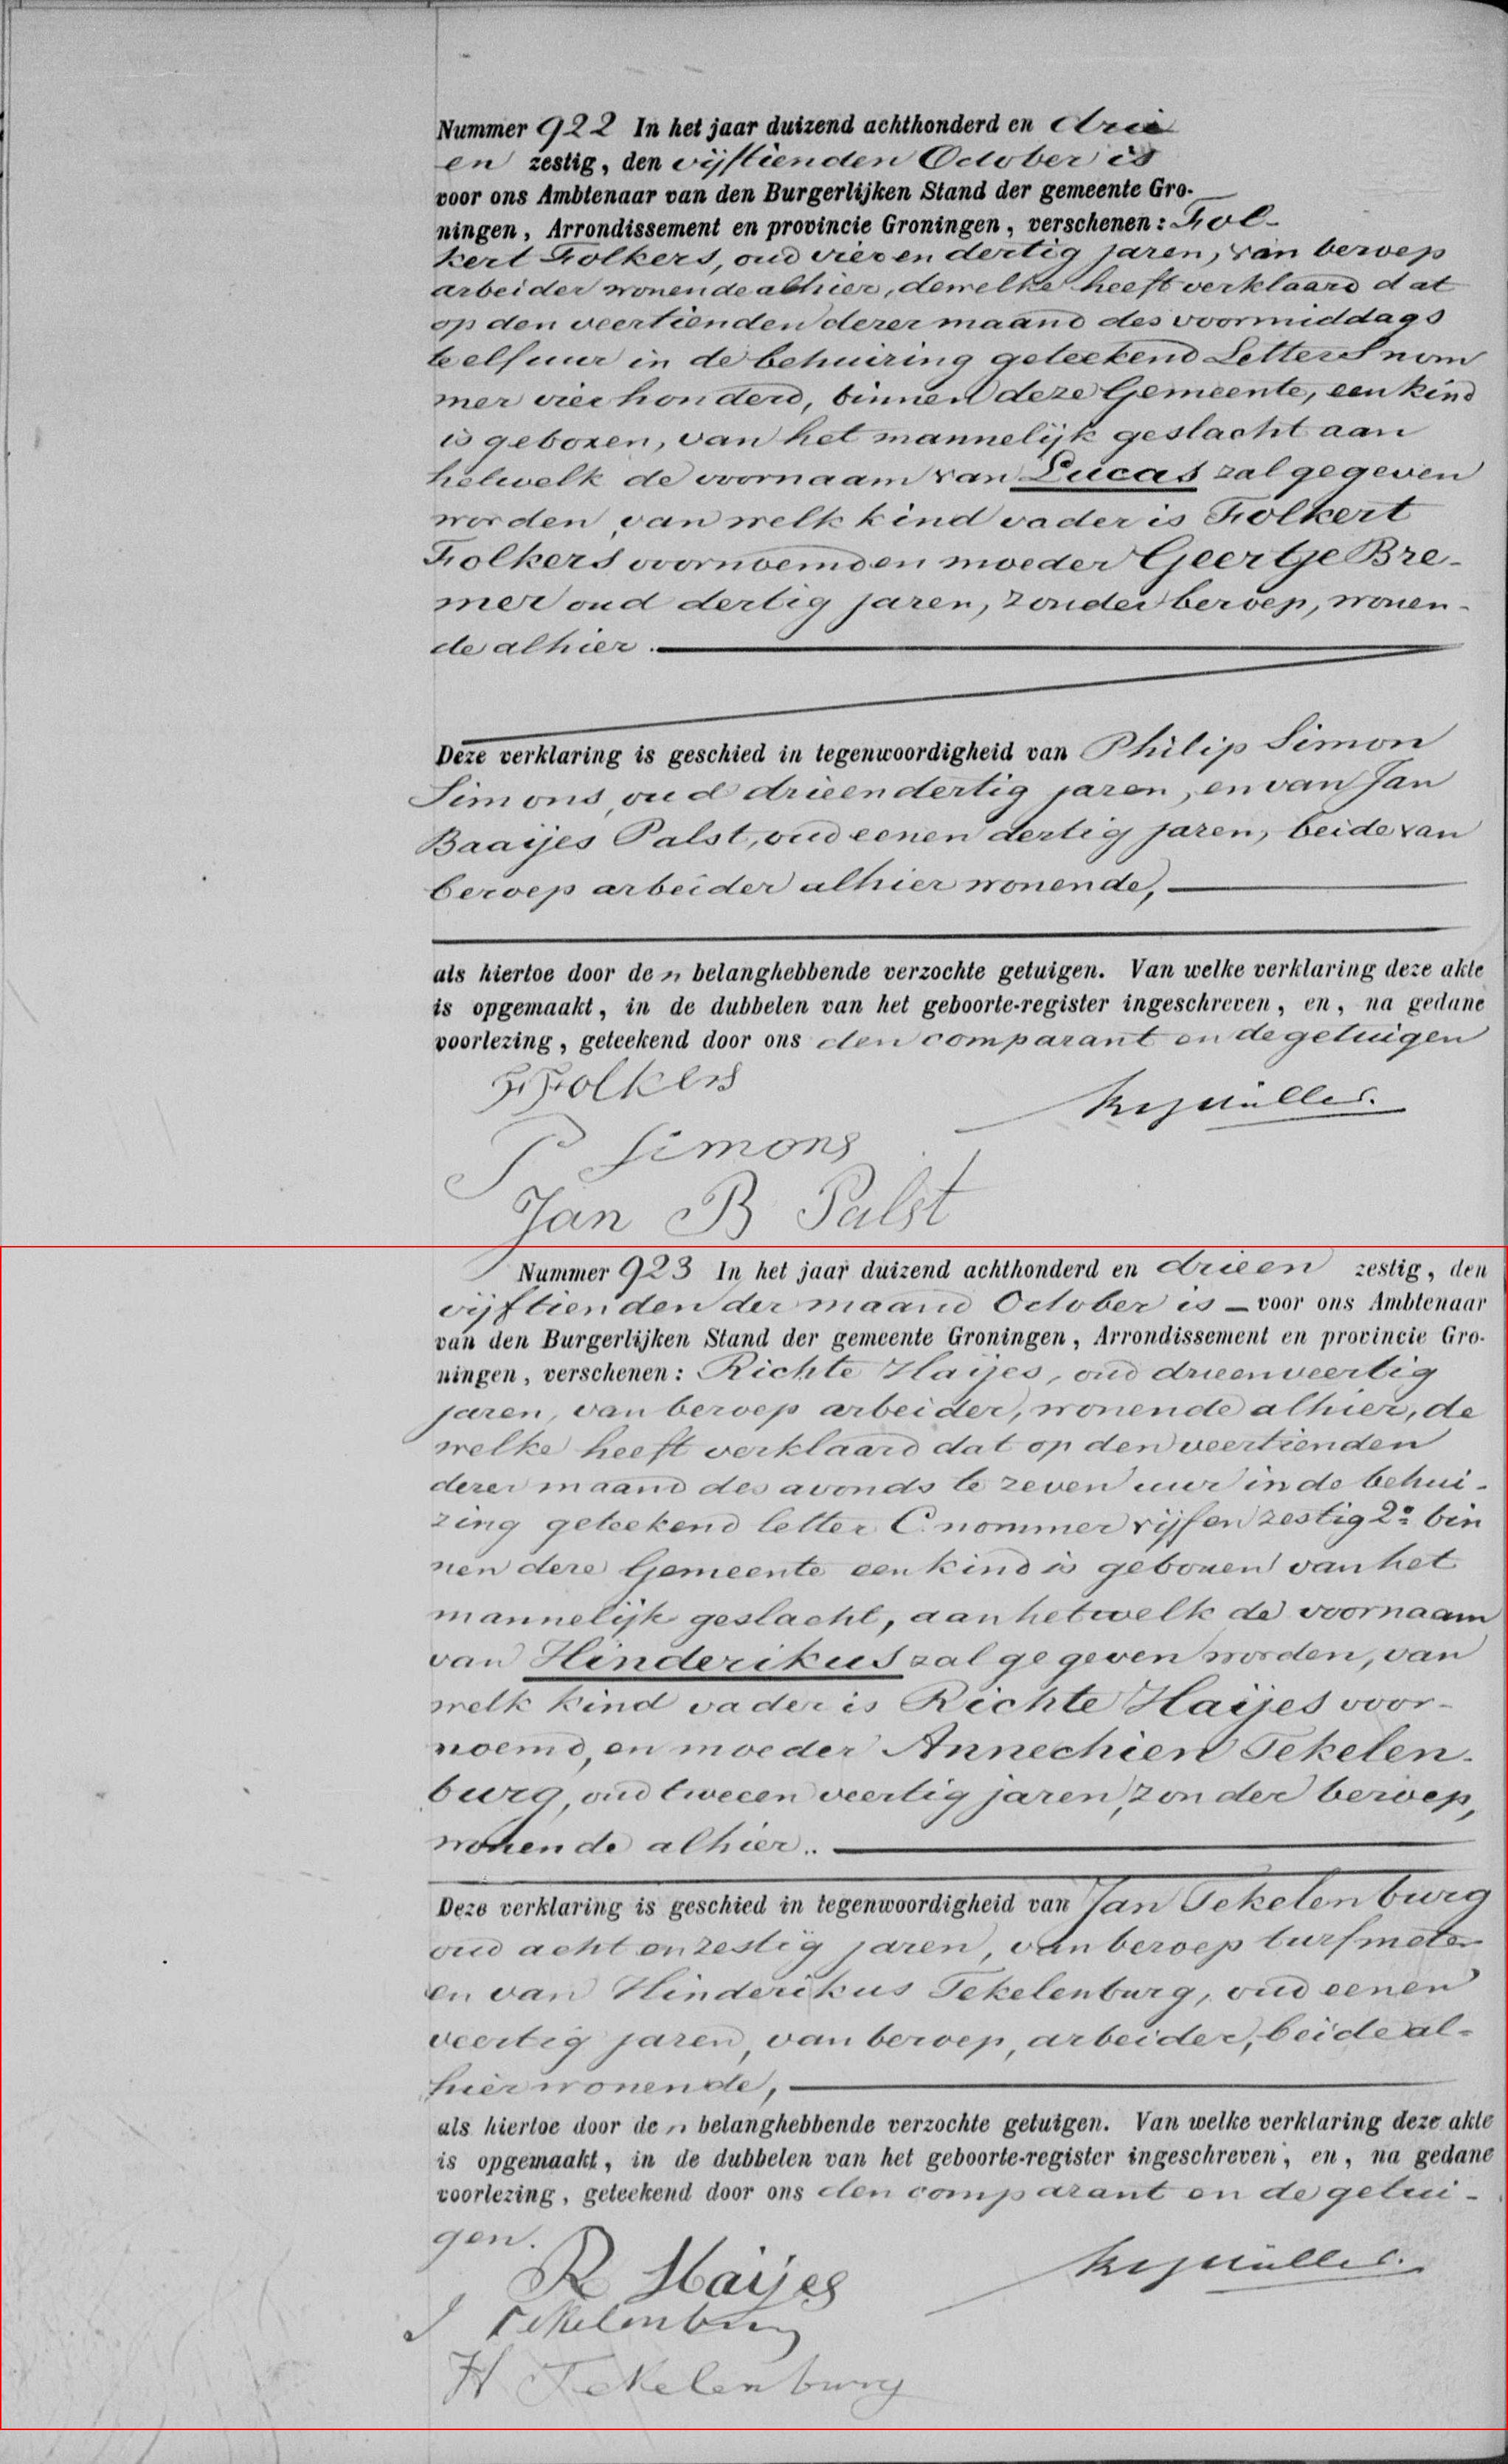 Nummer 922 In het jaar duizend achthonderd en drie
en zestig, den vijftienden October is
voor ons Ambtenaar van den Burgerlijken Stand der gemeente Gro-
ningen, Arrondissement en provincie Groningen, verschenen: Fol-
kert Folkers, oud vier en dertig jaren, van beroep
arbeider wonende alhier, dewelke heeft verklaard dat
op den veertienden dezer maand des voormiddags
te elf uur in de behuizing geteekend Letter S nom
mer vierhonderd, binnen deze Gemeente, een kind
is geboren, van het mannelijk geslacht aan
hetwelk de voornaam van Lucas zal gegeven
worden, van welk kind vader is Folkert
Folkers voornoemd en moeder Geertje Bre-
mer oud dertig jaren, zonder beroep, wonen-
de alhier.
Deze verklaring is geschied in tegenwoordigheid van Philip Simon
Simons, oud drieendertig jaren, en van Jan
Baaijes Palst, oud eenen dertig jaren, beide van
beroep arbeider alhier wonende,
als hiertoe door de n belanghebbende verzochte getuigen. Van welke verklaring deze akte
is opgemaakt, in de dubbelen van het geboorte-register ingeschreven, en, na gedane
voorlezing, geteekend door ons den comparant en de getuigen
F Folkers
P Simons
Jan B Palst
Nummer 923 In het jaar duizend achthonderd en drieen zestig, den
vijftienden der maand October is — voor ons Ambtenaar
van den Burgerlijken Stand der gemeente Groningen, Arrondissement en provincie Gro-
ningen, verschenen: Richte Haijes, oud drieenveertig
jaren, van beroep arbeider, wonende alhier, de
welke heeft verklaard dat op den veertienden
dezer maand des avonds te zeven uur in de behui-
zing geteekend letter C nommer vijf en zestig 2º bin
nen deze Gemeente een kind is geboren van het
mannelijk geslacht, aan hetwelk de voornaam
van Hinderikus zal gegeven worden, van
welk kind vader is Richte Haijes voor-
noemd, en moeder Annechien Tekelen-
burg, oud tweeen veertig jaren, zonder beroep,
wonende alhier..
Deze verklaring is geschied in tegenwoordigheid van Jan Tekelenburg
oud acht en zestig jaren, van beroep turfmeter
en van Hinderikus Tekelenburg, oud eenen
veertig jaren, van beroep, arbeider, beide al-
hier wonende,
als hiertoe door de n belanghebbende verzochte getuigen. Van welke verklaring deze akte
is opgemaakt, in de dubbelen van het geboorte-register ingeschreven, en, na gedane
voorlezing, geteekend door ons den comparant en de getui-
gen.
R Haijes
J Tekelenburg
H Tekelenburg